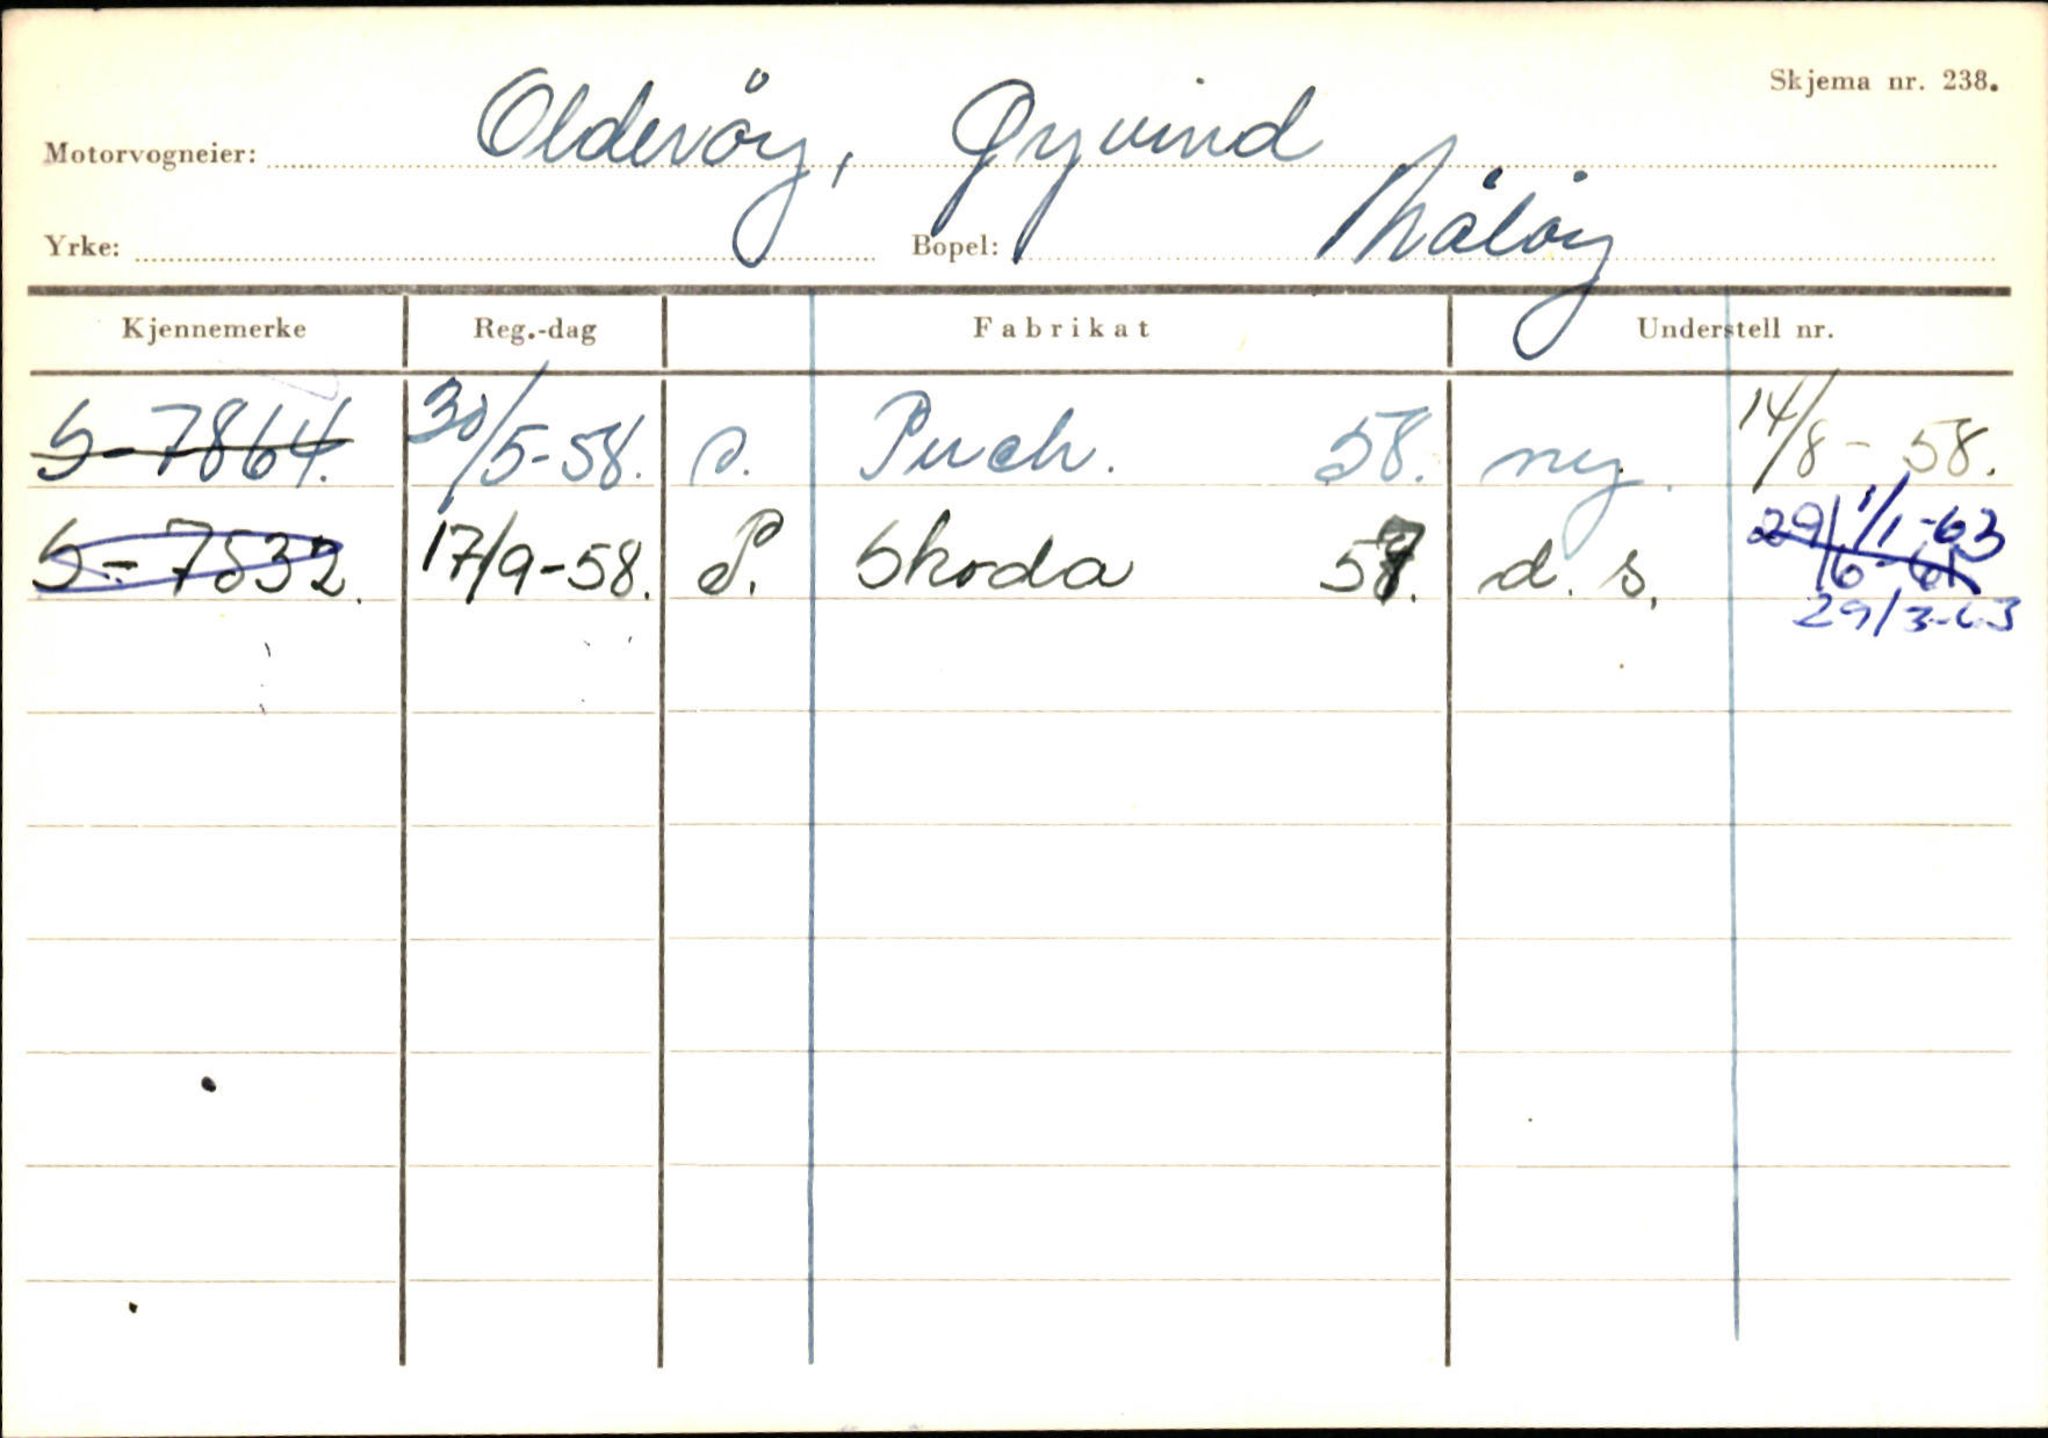 Skjema nr. 238.
Motorvogneier: Olderöy, Øyvind
Yrke: Bopel: Måløy
Kjennemerke Reg.-dag Fabrikat Understell nr.
S-7864. 30/5-58. P. Puch. 58. ny. 14/8-58.
S-7832. 17/9-58. P. Skoda 57. d. s. 29/6-61 1/1-63
29/3-63